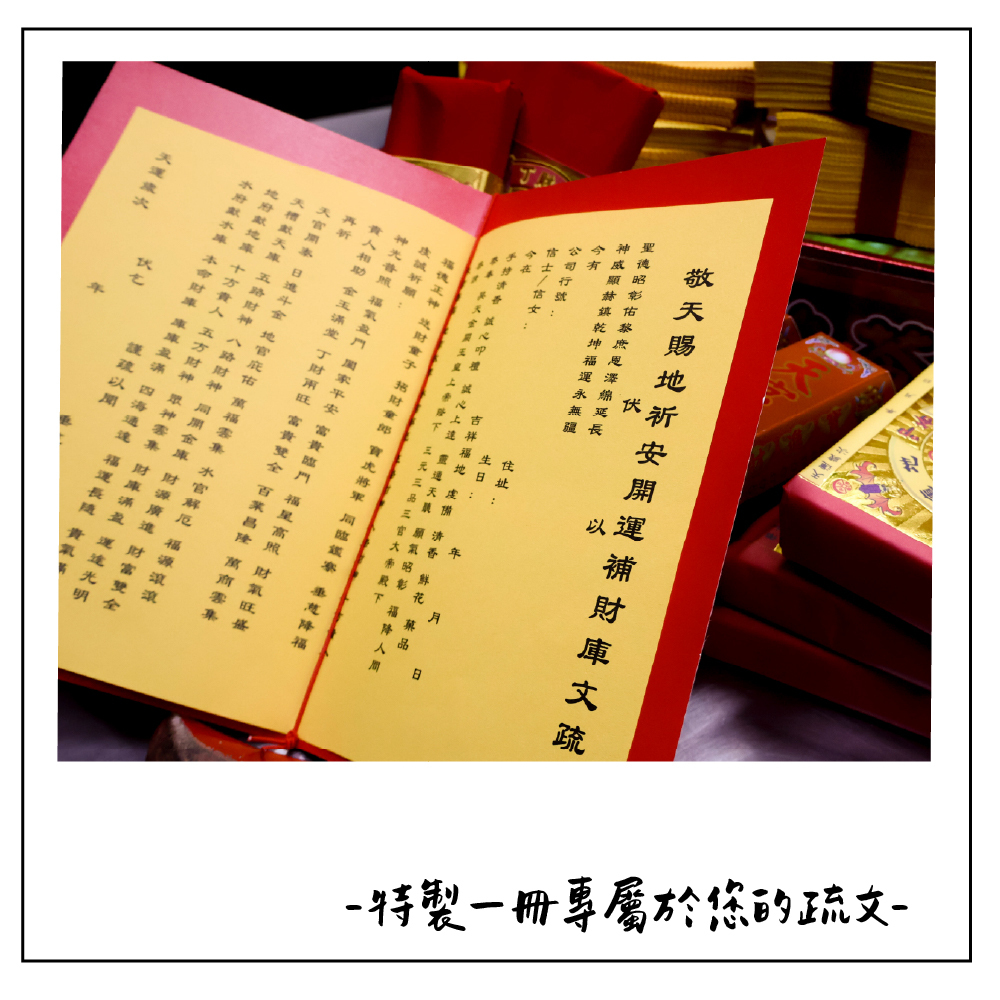 敬天賜地祈安開運補財庫文疏
伏
以
聖德昭彰佑黎庶恩澤綿延長
神威顯赫鎮乾坤福運永無疆
今有
公司行號：
信士／信女：
住址：
今在
吉祥福地
生日：
年 月 日
手持清香 誠心叩禮 誠心上達 靈通天聽
虔備 清香 鮮花 菓品
昊天金闕玉皇上帝陛下 三元三品三官大帝殿下
願氣昭彰 福降人間
福德正神 進財童子 招財童郎 寶虎將軍 同臨鑑察 垂慈降福
虔誠祈願：
神光普照 福氣盈門 闔家平安 富貴臨門 福星高照 財氣旺盛
貴人相助 金玉滿堂 丁財兩旺 富貴雙全 百業昌隆 萬商雲集
再祈
天官開泰 日進斗金 地官庇佑 萬福雲集 水官解厄 福源滾滾
天曹獻天庫 五路財神 八路財神 同開金庫 財源廣進 財富雙全
地府獻地庫 十方貴人 五方財神 眾神雲集 財庫滿盈 運途光明
水府獻水庫 本命財庫 庫庫盈滿 四海通達 福運長隆 貴氣滿
伏乞
謹疏以聞
天運歲次 年
天庫
地
-特製一冊專屬於您的疏文-